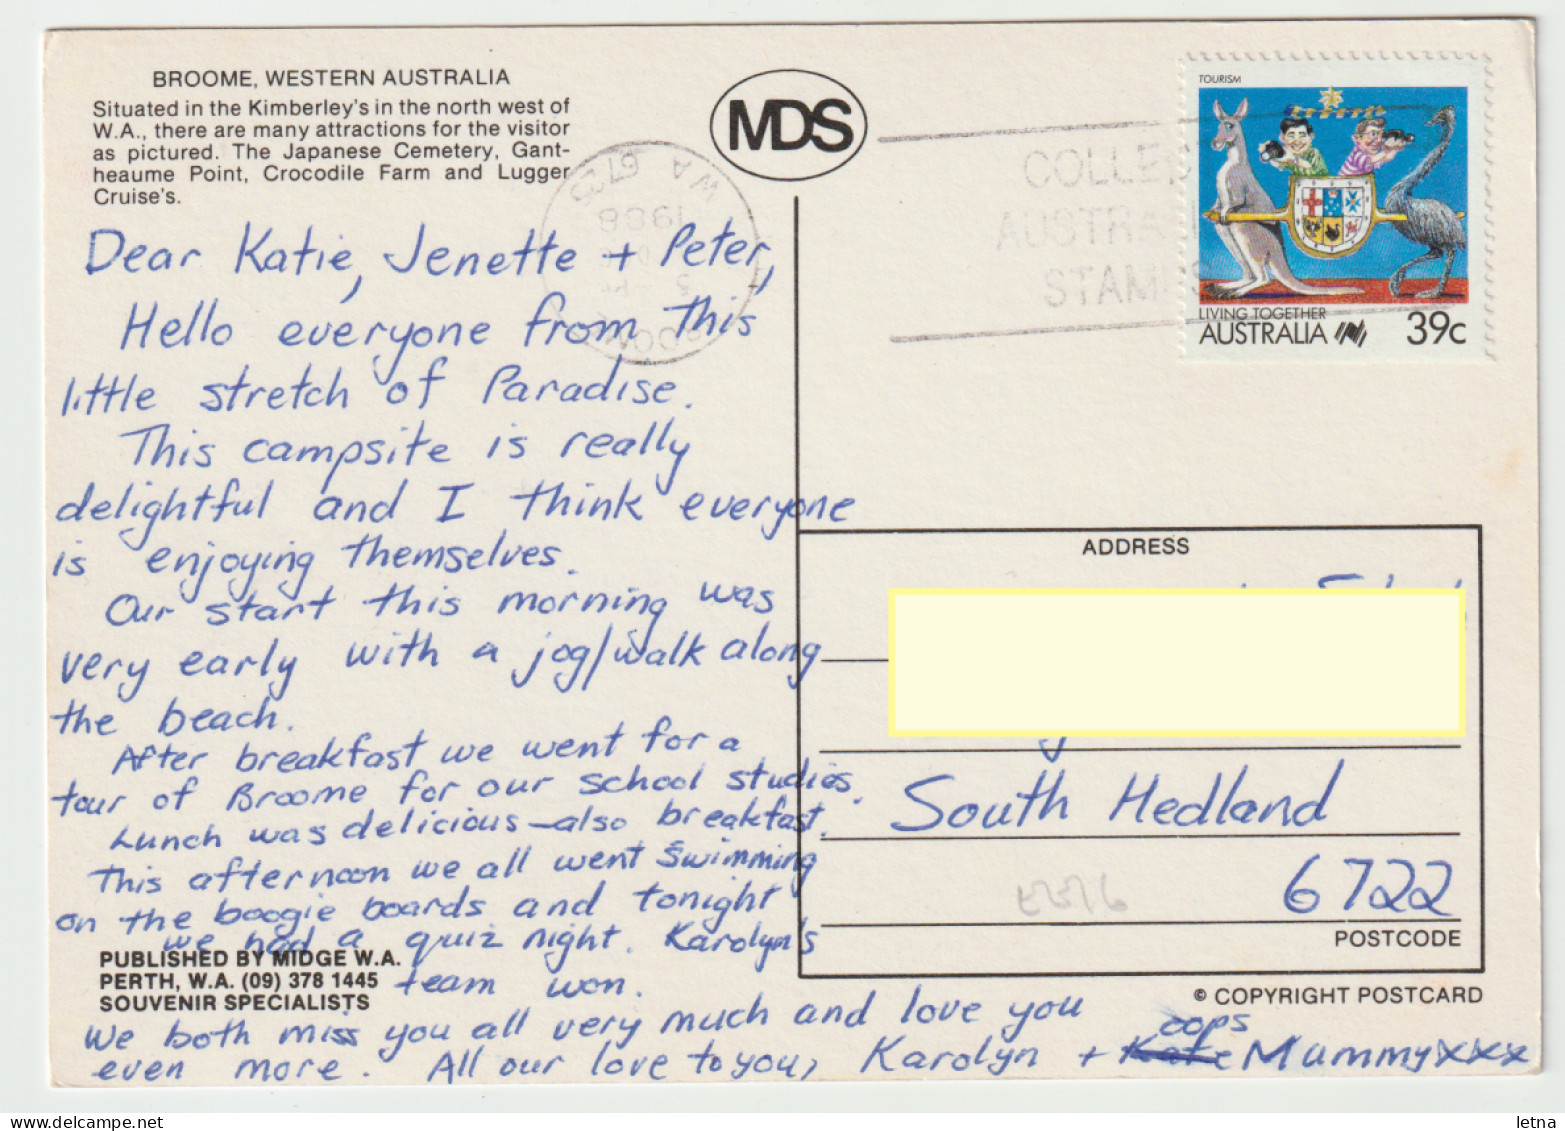 BROOME, WESTERN AUSTRALIA
Situated in the Kimberley's in the north west of
W.A., there are many attractions for the visitor
as pictured. The Japanese Cemetery, Gant-
heaume Point, Crocodile Farm and Lugger
Cruise's.
MDS
WA 6725
1988
COLLE
AUSTRA
STAMPS
TOURISM
LIVING TOGETHER
AUSTRALIA 39c
Dear Katie, Jenette + Peter,
Hello everyone from this
little stretch of Paradise.
This campsite is really
delightful and I think everyone
is enjoying themselves.
Our start this morning was
very early with a jog/walk along
the beach.
After breakfast we went for a
tour of Broome for our school studies.
Lunch was delicious - also breakfast.
This afternoon we all went swimming
on the boogie boards and tonight
we had a quiz night. Karolyn's
team won.
We both miss you all very much and love you
even more. All our love to you, Karolyn + Kate oops Mummy xxx
PUBLISHED BY MIDGE W.A.
PERTH, W.A. (09) 378 1445
SOUVENIR SPECIALISTS
ADDRESS
South Hedland
6722
POSTCODE
© COPYRIGHT POSTCARD
letna